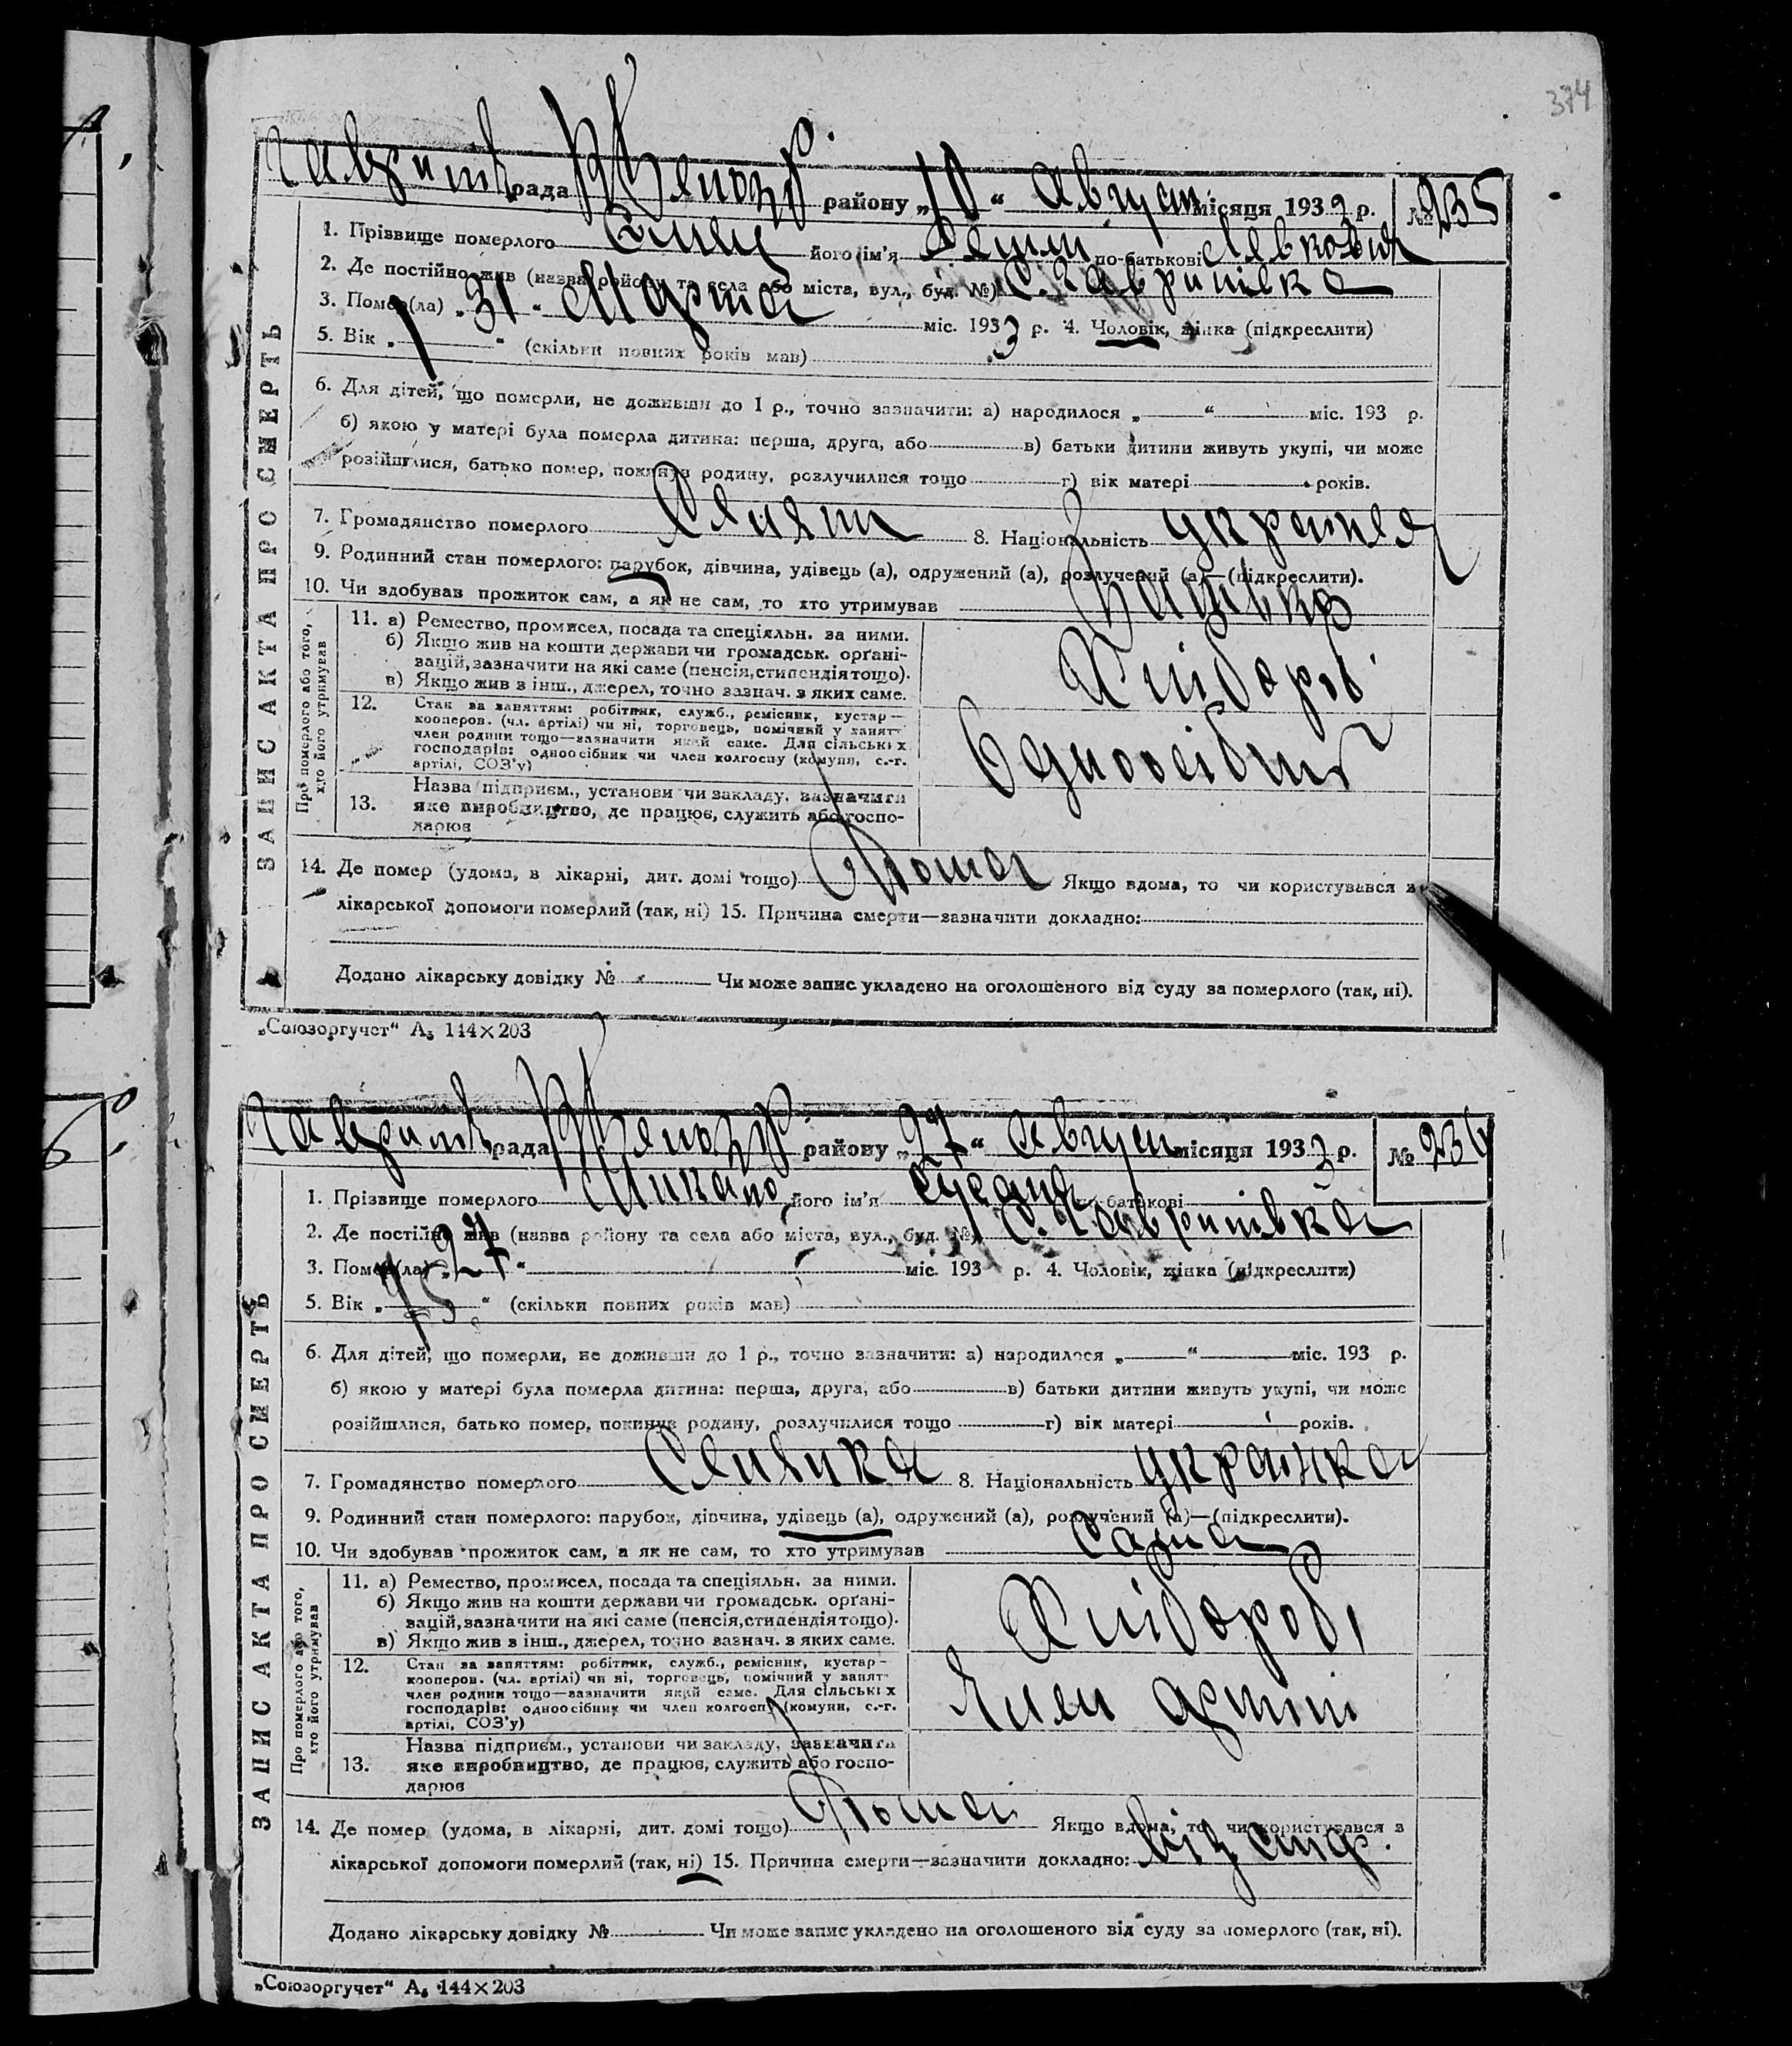 374
рада району „10“ Август місяця 1933 р. № 235
1. Прізвище померлого його ім'я по батькові Левкович
2. Де постійно жив (назва району та села або міста, вул., буд. №) С. Гавришівка
3. Помер(ла) „31“ Марта міс. 1933 р. 4. Чоловік, жінка (підкреслити)
5. Вік „ “ (скільки повних років мав)
6. Для дітей, що померли, не доживши до 1 р., точно зазначити: а) народилося „ “ міс. 193 р.
б) якою у матері була померла дитина: перша, друга, або в) батьки дитини живуть укупі, чи може
розійшлися, батько помер, покинув родину, розлучилися тощо г) вік матері років.
7. Громадянство померлого Селян 8. Національність украинец
9. Родинний стан померлого: парубок, дівчина, удівець (а), одружений (а), розлучений (а)—(підкреслити).
10. Чи здобував прожиток сам, а як не сам, то хто утримував Батько
Про померлого або того, хто його утримував
11. а) Ремество, промисел, посада та спеціяльн. за ними.
б) Якщо жив на кошти держави чи громадськ. орґані-
зацій, зазначити на які саме (пенсія, стипендія тощо).
в) Якщо жив з інш., джерел, точно зазнач. з яких саме.
Хлібороб
12. Стан за заняттям: робітник, служб., ремісник, кустар—
кооперов. (чл. артілі) чи ні, торговець, помічний у занят—
член родини тощо—зазначити який саме. Для сільських
господарів: одноосібник чи член колгоспу (комуни, с.-г.
артілі, СОЗ'у)
Одноосібник
13. Назва підприєм., установи чи закладу, зазначити
яке виробництво, де працює, служить або госпо-
дарює
14. Де помер (удома, в лікарні, дит. домі тощо) Дома Якщо вдома, то чи користувався з
лікарської допомоги померлий (так, ні) 15. Причина смерти—зазначити докладно:
Додано лікарську довідку № Чи може запис укладено на оголошеного від суду за померлого (так, ні).
ЗАПИС АКТА ПРО СМЕРТЬ
„Союзоргучет“ А₅ 144×203
рада району „27“ Август місяця 1933 р. № 236
1. Прізвище померлого його ім'я по батькові
2. Де постійно жив (назва району та села або міста, вул., буд. №) С. Гавришівка
3. Помер(ла) „27“ міс. 193 р. 4. Чоловік, жінка (підкреслити)
5. Вік „ “ (скільки повних років мав)
6. Для дітей, що померли, не доживши до 1 р., точно зазначити: а) народилося „ “ міс. 193 р.
б) якою у матері була померла дитина: перша, друга, або в) батьки дитини живуть укупі, чи може
розійшлися, батько помер, покинув родину, розлучилися тощо г) вік матері років.
7. Громадянство померлого Селянка 8. Національність украинка
9. Родинний стан померлого: парубок, дівчина, удівець (а), одружений (а), розлучений (а)—(підкреслити).
10. Чи здобував прожиток сам, а як не сам, то хто утримував Сама
Про померлого або того, хто його утримував
11. а) Ремество, промисел, посада та спеціяльн. за ними.
б) Якщо жив на кошти держави чи громадськ. орґані-
зацій, зазначити на які саме (пенсія, стипендія тощо).
в) Якщо жив з інш., джерел, точно зазнач. з яких саме.
Хлібороб
12. Стан за заняттям: робітник, служб., ремісник, кустар—
кооперов. (чл. артілі) чи ні, торговець, помічний у занят—
член родини тощо—зазначити який саме. Для сільських
господарів: одноосібник чи член колгоспу (комуни, с.-г.
артілі, СОЗ'у)
Член артілі
13. Назва підприєм., установи чи закладу, зазначити
яке виробництво, де працює, служить або госпо-
дарює
14. Де помер (удома, в лікарні, дит. домі тощо) Дома Якщо вдома, то чи користувався з
лікарської допомоги померлий (так, ні) 15. Причина смерти—зазначити докладно: від стар.
Додано лікарську довідку № Чи може запис укладено на оголошеного від суду за померлого (так, ні).
ЗАПИС АКТА ПРО СМЕРТЬ
„Союзоргучет“ А₅ 144×203